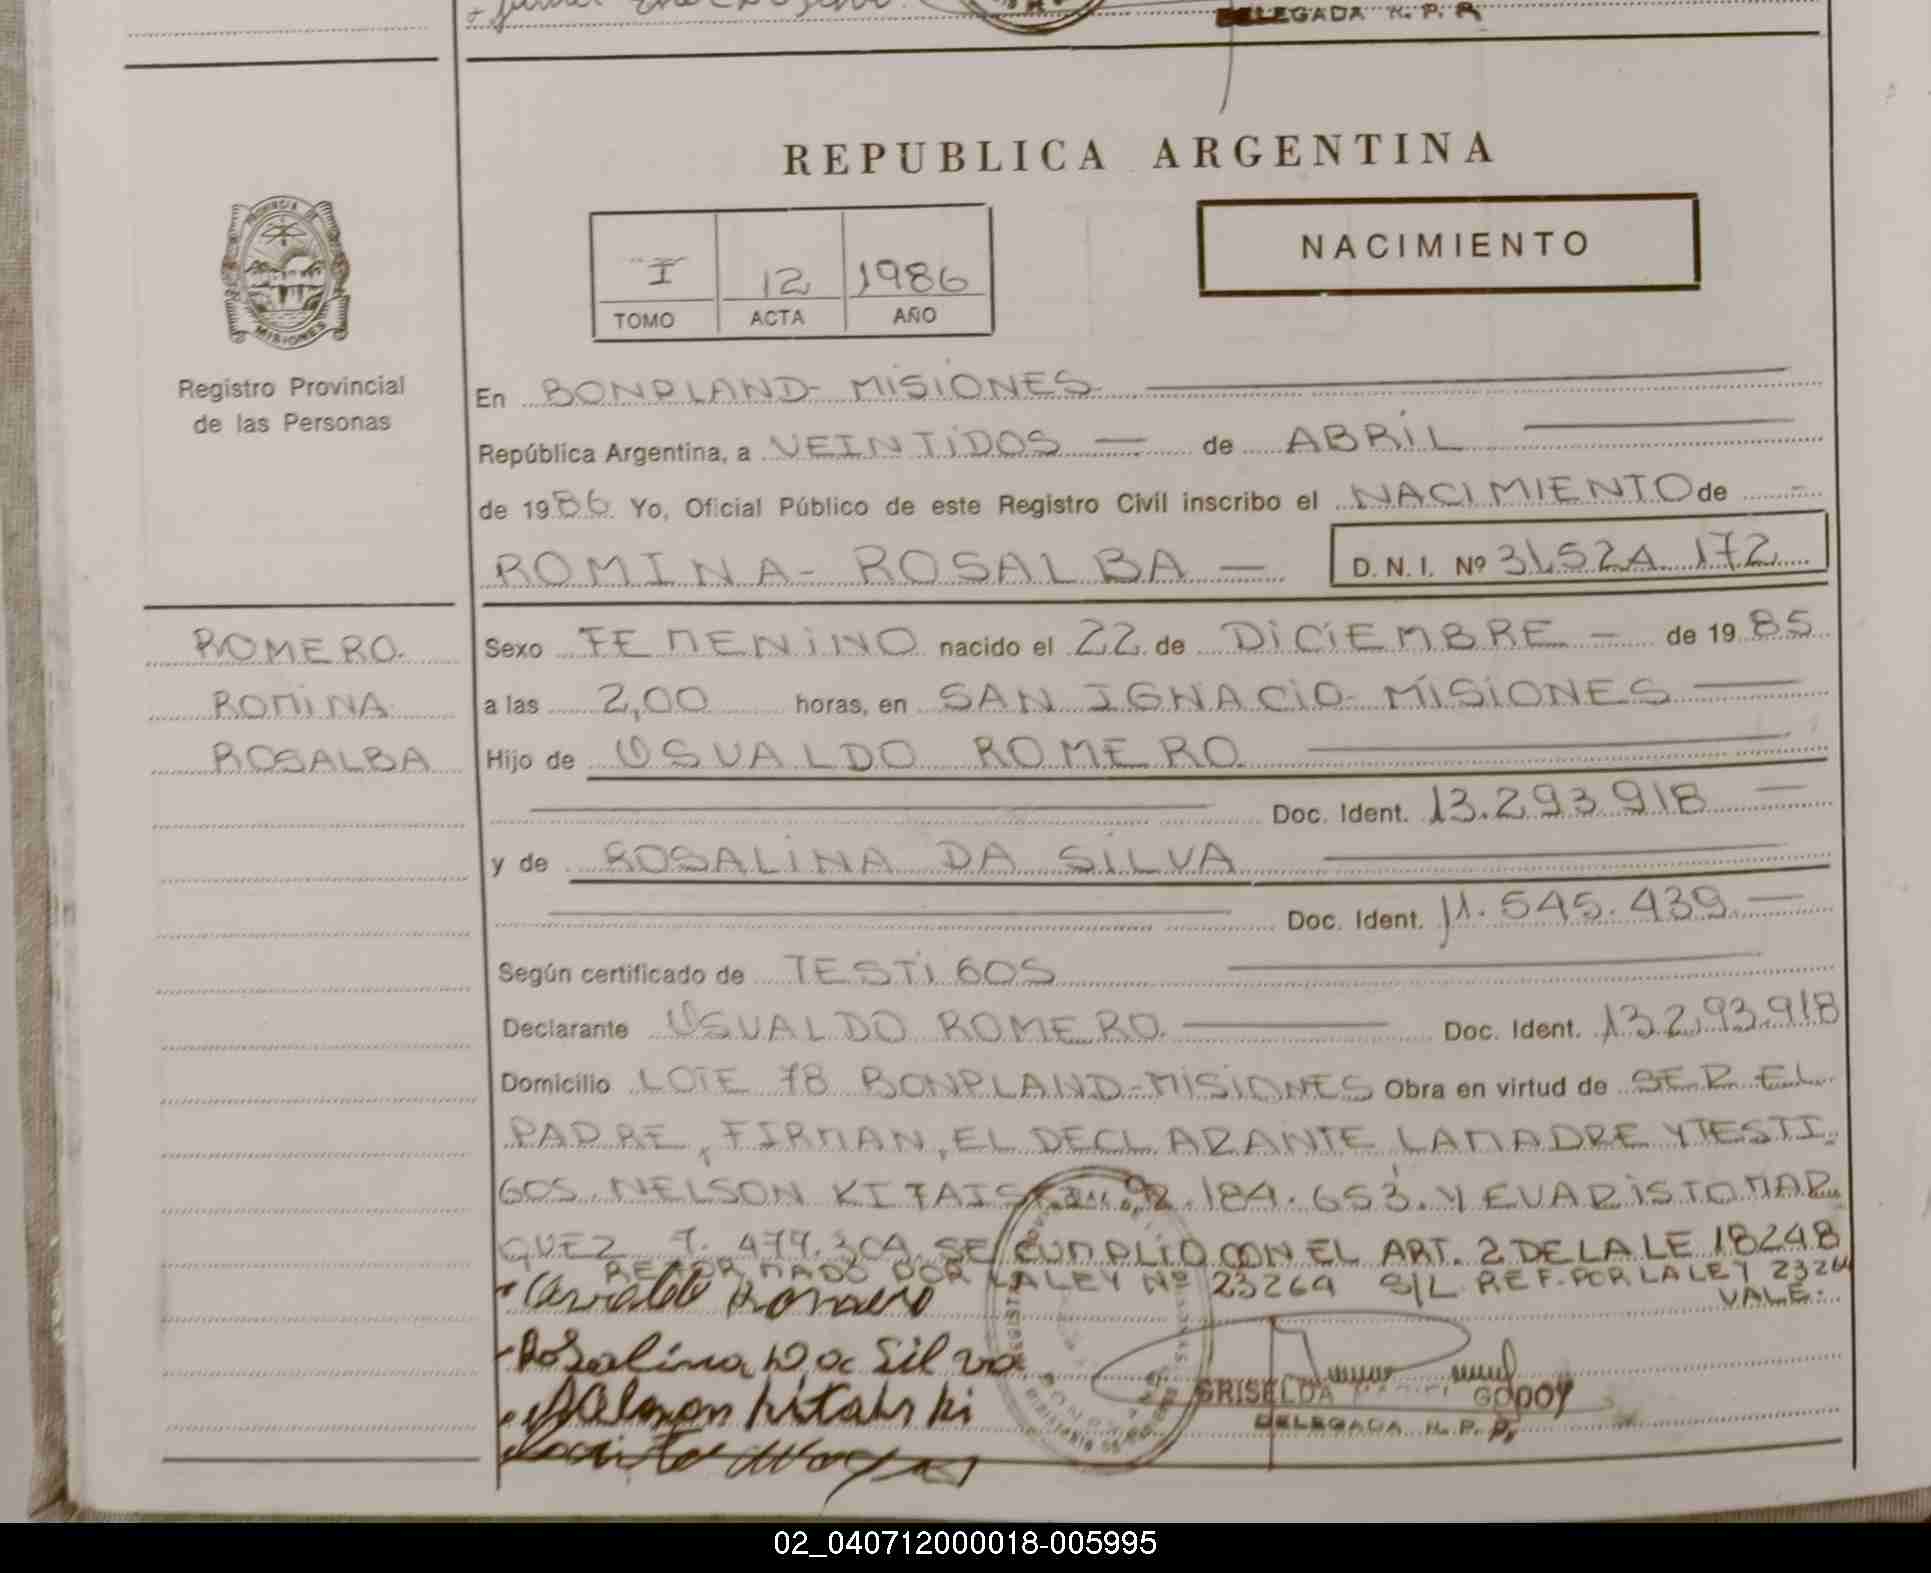 DELEGADA R. P. P.
REPUBLICA ARGENTINA
PROVINCIA DE
MISIONES
Registro Provincial
de las Personas
I 12 1986
TOMO ACTA AÑO
NACIMIENTO
En BONPLAND - MISIONES
República Argentina, a VEINTIDOS — de ABRIL
de 1986 Yo, Oficial Público de este Registro Civil inscribo el NACIMIENTO de -
ROMINA - ROSALBA — D. N. I. Nº 31.524.172
ROMERO
ROMINA
ROSALBA
Sexo FEMENINO nacido el 22 de DICIEMBRE - de 1985
a las 2,00 horas, en SAN IGNACIO - MISIONES
Hijo de OSVALDO ROMERO
Doc. Ident. 13.293.918
y de ROSALINA DA SILVA
Doc. Ident. 11.545.439
Según certificado de TESTIGOS
Declarante OSVALDO ROMERO Doc. Ident. 13.293.918
Domicilio LOTE 78 BONPLAND-MISIONES Obra en virtud de SER EL
PADRE, FIRMAN, EL DECLARANTE LA MADRE Y TESTI
GOS NELSON KITAISKI 92.184.653. Y EVARISTO MAR
QUEZ 7.477.304. SE CUMPLIO CON EL ART. 2 DE LA LE 18248
REFORMADO POR LA LEY Nº 23264 S/L REF. POR LA LEY 23264
VALE.
Osvaldo Romero
Rosalina Da Silva
Nelson Kitaiski
GRISELDA GODOY
DELEGADA R. P. P.
02_040712000018-005995